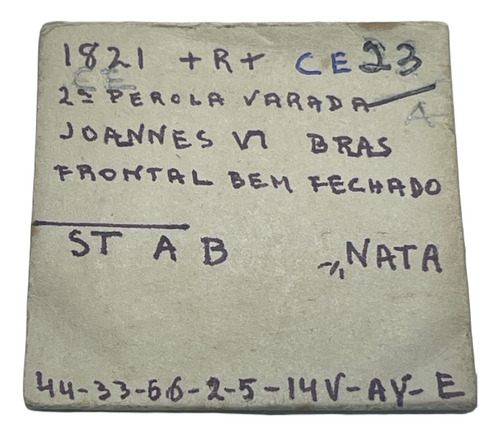 1821 +R+ CE 23
CE
2ª PEROLA VARADA
A
JOANNES VI BRAS
FRONTAL BEM FECHADO
ST A B NATA
44-33-66-2-5-14V-AY-E